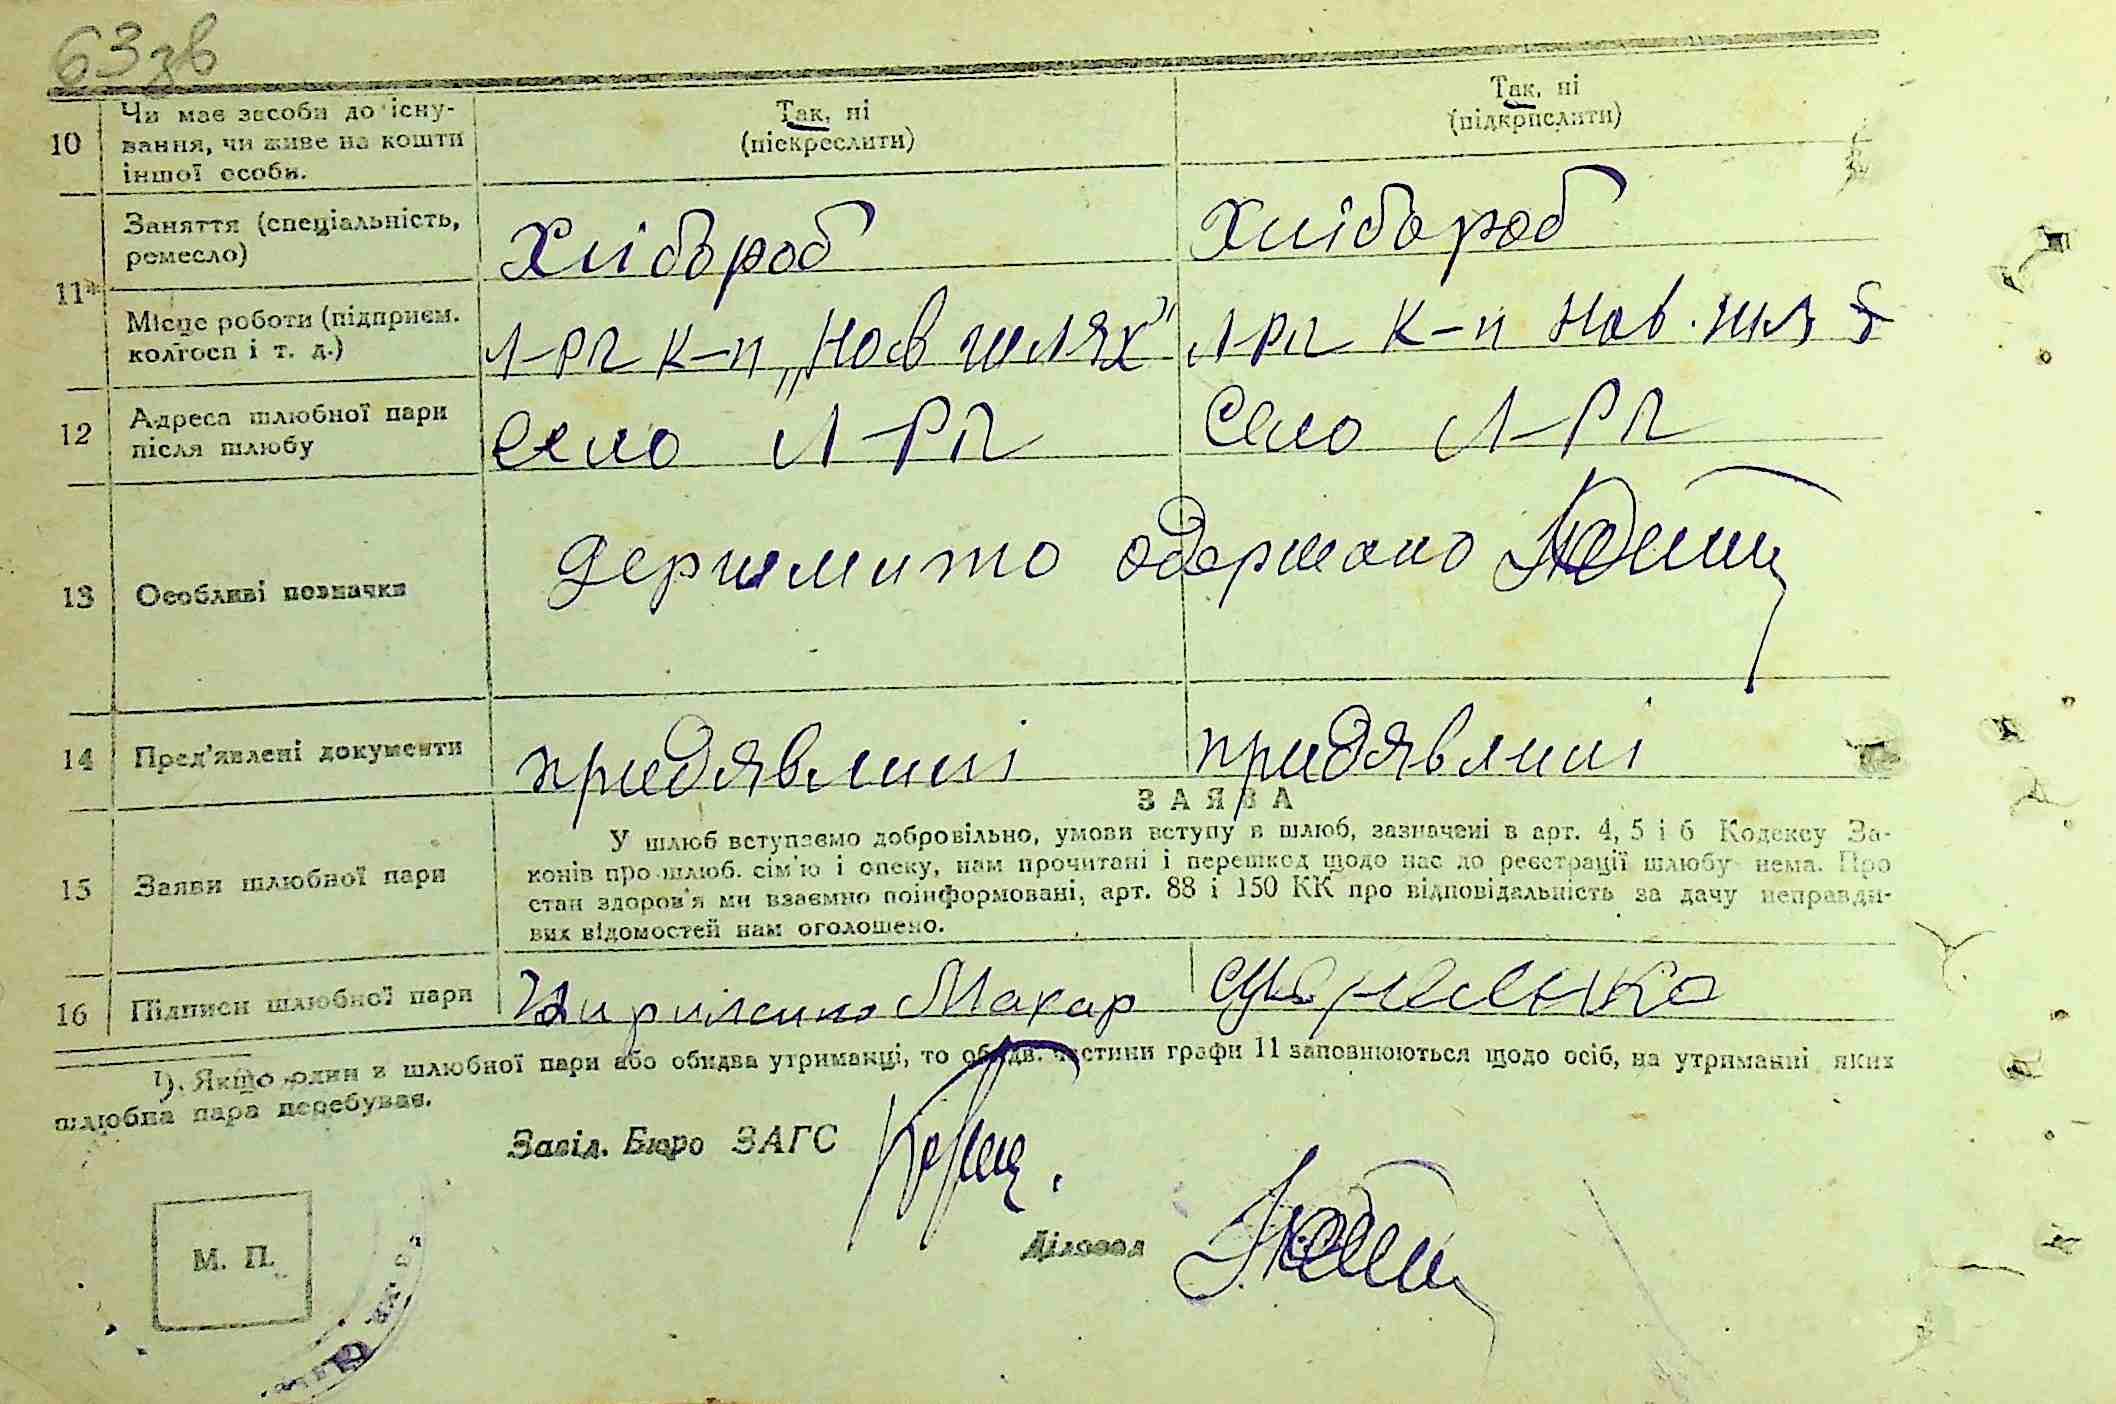 63зв
10
Чи має засоби до існу-
вання, чи живе на кошти
іншої особи.
Так, ні
(піскреслити)
Так, ні
(підкрпслити)
11
Заняття (спеціальність,
ремесло)
Хлібороб
Хлібороб
Місце роботи (підприєм.
колгосп і т. д.)
Л-РП К-п „Нов шлях"
Л-РП К-п Нов. шлях
12
Адреса шлюбної пари
після шлюбу
Село Л-РП
Село Л-РП
13
Особливі позначки
держмито одержано
14
Пред'явлені документи
придявлині
придявлині
ЗАЯВА
15
Заяви шлюбної пари
У шлюб вступаємо добровільно, умови вступу в шлюб, зазначені в арт. 4, 5 і 6 Кодексу За-
конів про шлюб. сім'ю і опеку, нам прочитані і перешкод щодо нас до реєстрації шлюбу нема. Про
стан здоров'я ми взаємно поінформовані, арт. 88 і 150 КК про відповідальність за дачу неправди-
вих відомостей нам оголошено.
16
Підписи шлюбної пари
Макар
1). Якщо один з шлюбної пари або обидва утриманці, то обидв. частини графи 11 заповнюються щодо осіб, на утриманні яких
шлюбна пара перебуває.
Завід. Бюро ЗАГС
Діловод
М. П.